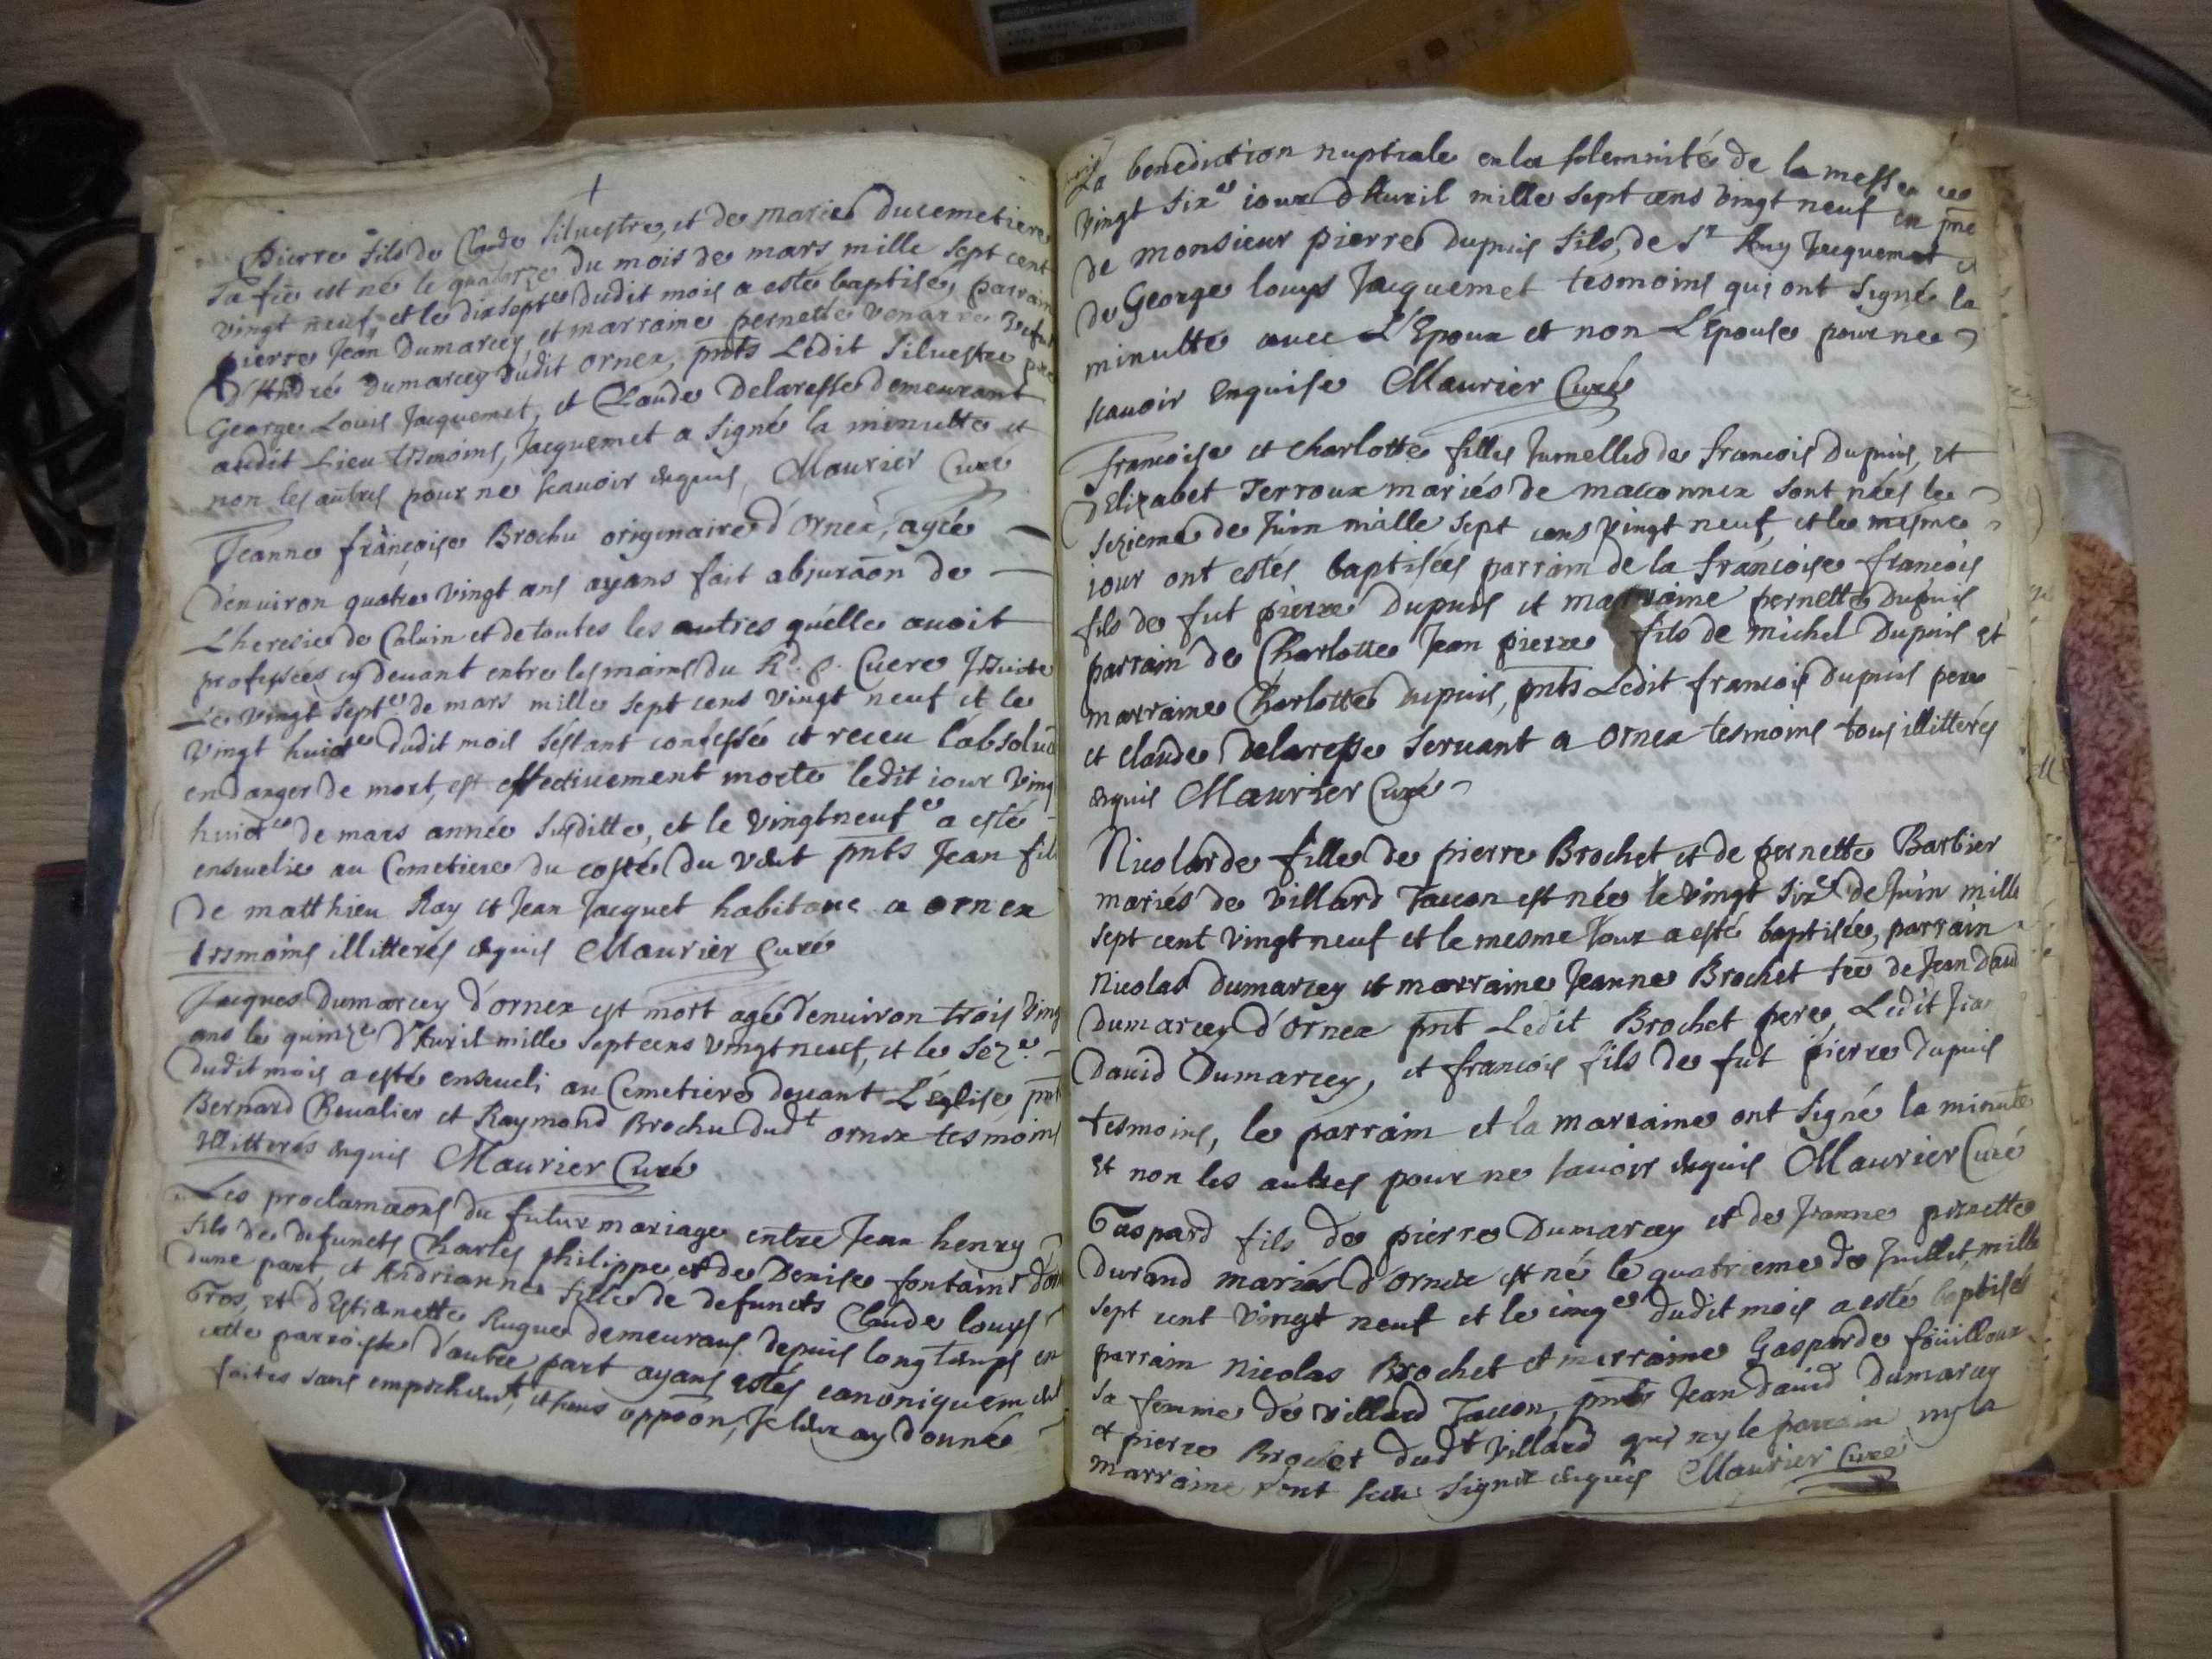 †
Pierre fils de Claude Siluestre, et de Marie Ducemetiere
sa fẽe est né le quatorze du mois de mars mille sept cent
vingt neuf, et le dix septe dudit mois a esté baptisé, parrain
pierre Jean Dumarcey et marraine pernette
d'André Dumarcey dudit ornex, pnts Ledit Siluestre pere
George Louis Jacquemet, et Claude Delaresse demeurant
audit Lieu tesmoins, Jacquemet a signé la minutte et
non les autres pour ne scauoir enquis, Maurier Curé
Jeanne françoise Brochu originaire d'Ornex, agée
d'enuiron quatre vingt ans ayans fait abjuraõn de
L'heresie de Caluin et de toutes les autres qu'elle auoit
professées cy deuant entre les mains du Rd. P. Cuere Jesuite
Le vingt septe de mars mille sept cens vingt neuf et le
vingt huicte dudit mois s'estant confessée et receu l'absoluõn
en danger de mort, est effectiuement morte ledit iour ving
huicte de mars année susditte, et le vingtneufe a esté
enseuelie au Cemetiere du costé du vent pnts Jean fils
de matthieu Ray et Jean Jacquet habitans a ornex
tesmoins illitterés enquis Maurier Curé
Jacques Dumarcey d'ornex est mort agé d'enuiron trois ving
ans le quinze d'Auril mille septcens vingtneuf, et le seze
dudit mois a esté enseueli au Cemetiere deuant L'église pnts
Bernard Cheualier et Raymond Brochu dudt ornex tesmoins
illitterés enquis Maurier Curé
Les proclamaõns du futur mariage entre Jean henry
fils de defuncts Charles philippe et de Denise fontaine d'or
d'une part, et Andrianne fille de defuncts Claude louys
Gros, et d'Estiennette Rugue demeurans depuis longtemps en
cette parroisse d'autre part ayans estés canoniquem ent
faites sans empechemt, et sans oppoõn, Je leur ay donné
La benediction nuptiale en la solemnité de la messe ce
vingt sixe iour d'Auril mille sept cens vingt neuf en pñce
de monsieur pierre Dupuis fils, de Sr Amy Jacquemet et
de George louys Jacquemet tesmoins qui ont signé la
minutte auec L'Epoux et non L'Epouse pour ne
scauoir Enquise Maurier Curé
francoise et charlotte filles Jumelles de francois Dupuis, et
d'Elizabet Terroux mariés de maconnex sont nées le
sezieme de Juin mille sept cens vingt neuf, et le mesme
iour ont estés baptisées parrain de la francoise francois
fils de fut pierre Dupuis et marraine pernette Dupuis
parrain de Charlotte Jean pierre fils de michel Dupuis et
marraine Charlotte Dupuis, pnts Ledit francois Dupuis pere
et claude Delaresse seruant a ornex tesmoins tous illitterés
enquis Maurier Curé
Nicolarde fille de pierre Brochet et de pernette Barbier
mariés de villard Taccon est née le vingt sixe de Juin mille
sept cent vingt neuf et le mesme Jour a esté baptisée, parrain
Nicolas Dumarcey et marraine Jeanne Brochet fẽe de Jean Dauid
Dumarcey d'Ornex pnt Ledit Brochet pere, Ledit Jean
Dauid Dumarcey, et francois fils de fut pierre Dupuis
tesmoins, le parrain et la marraine ont signé la minute
et non les autres pour ne sauoir enquis Maurier Curé
Gaspard fils de pierre Dumarcey et de Jeanne pernette
Durand mariés d'ornex est né le quatrieme de Juillet, mille
sept cent vingt neuf et le cinqe dudit mois a esté baptisé
parrain Nicolas Brochet et marraine Gasparde foüilloux
sa femme de villard Taccon, pnts Jean Dauid Dumarcey
et pierre Brochet dudt villard qui ny le parrain ny la
marraine n'ont sceu signer enquis Maurier Curé